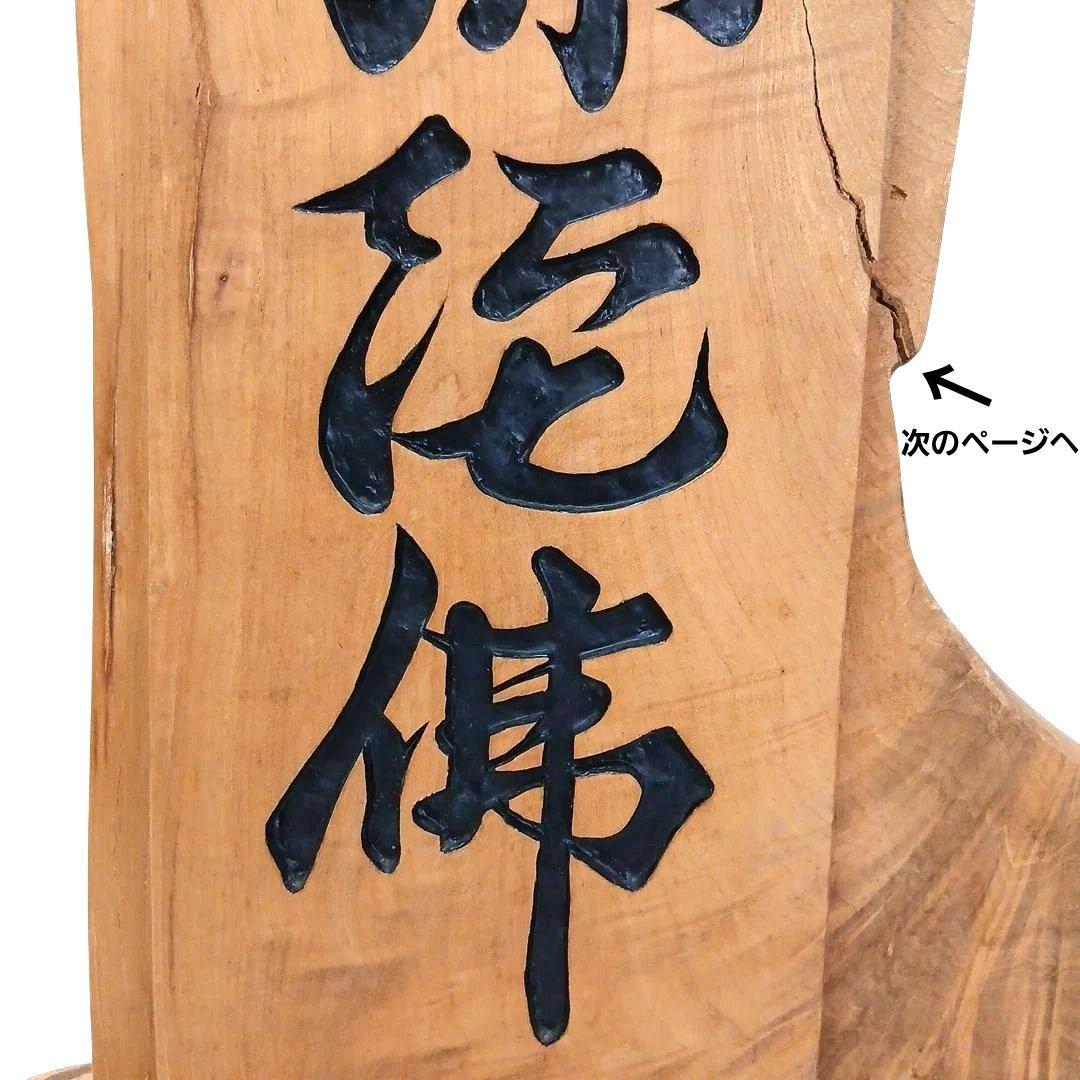 陀
佛
次のページへ